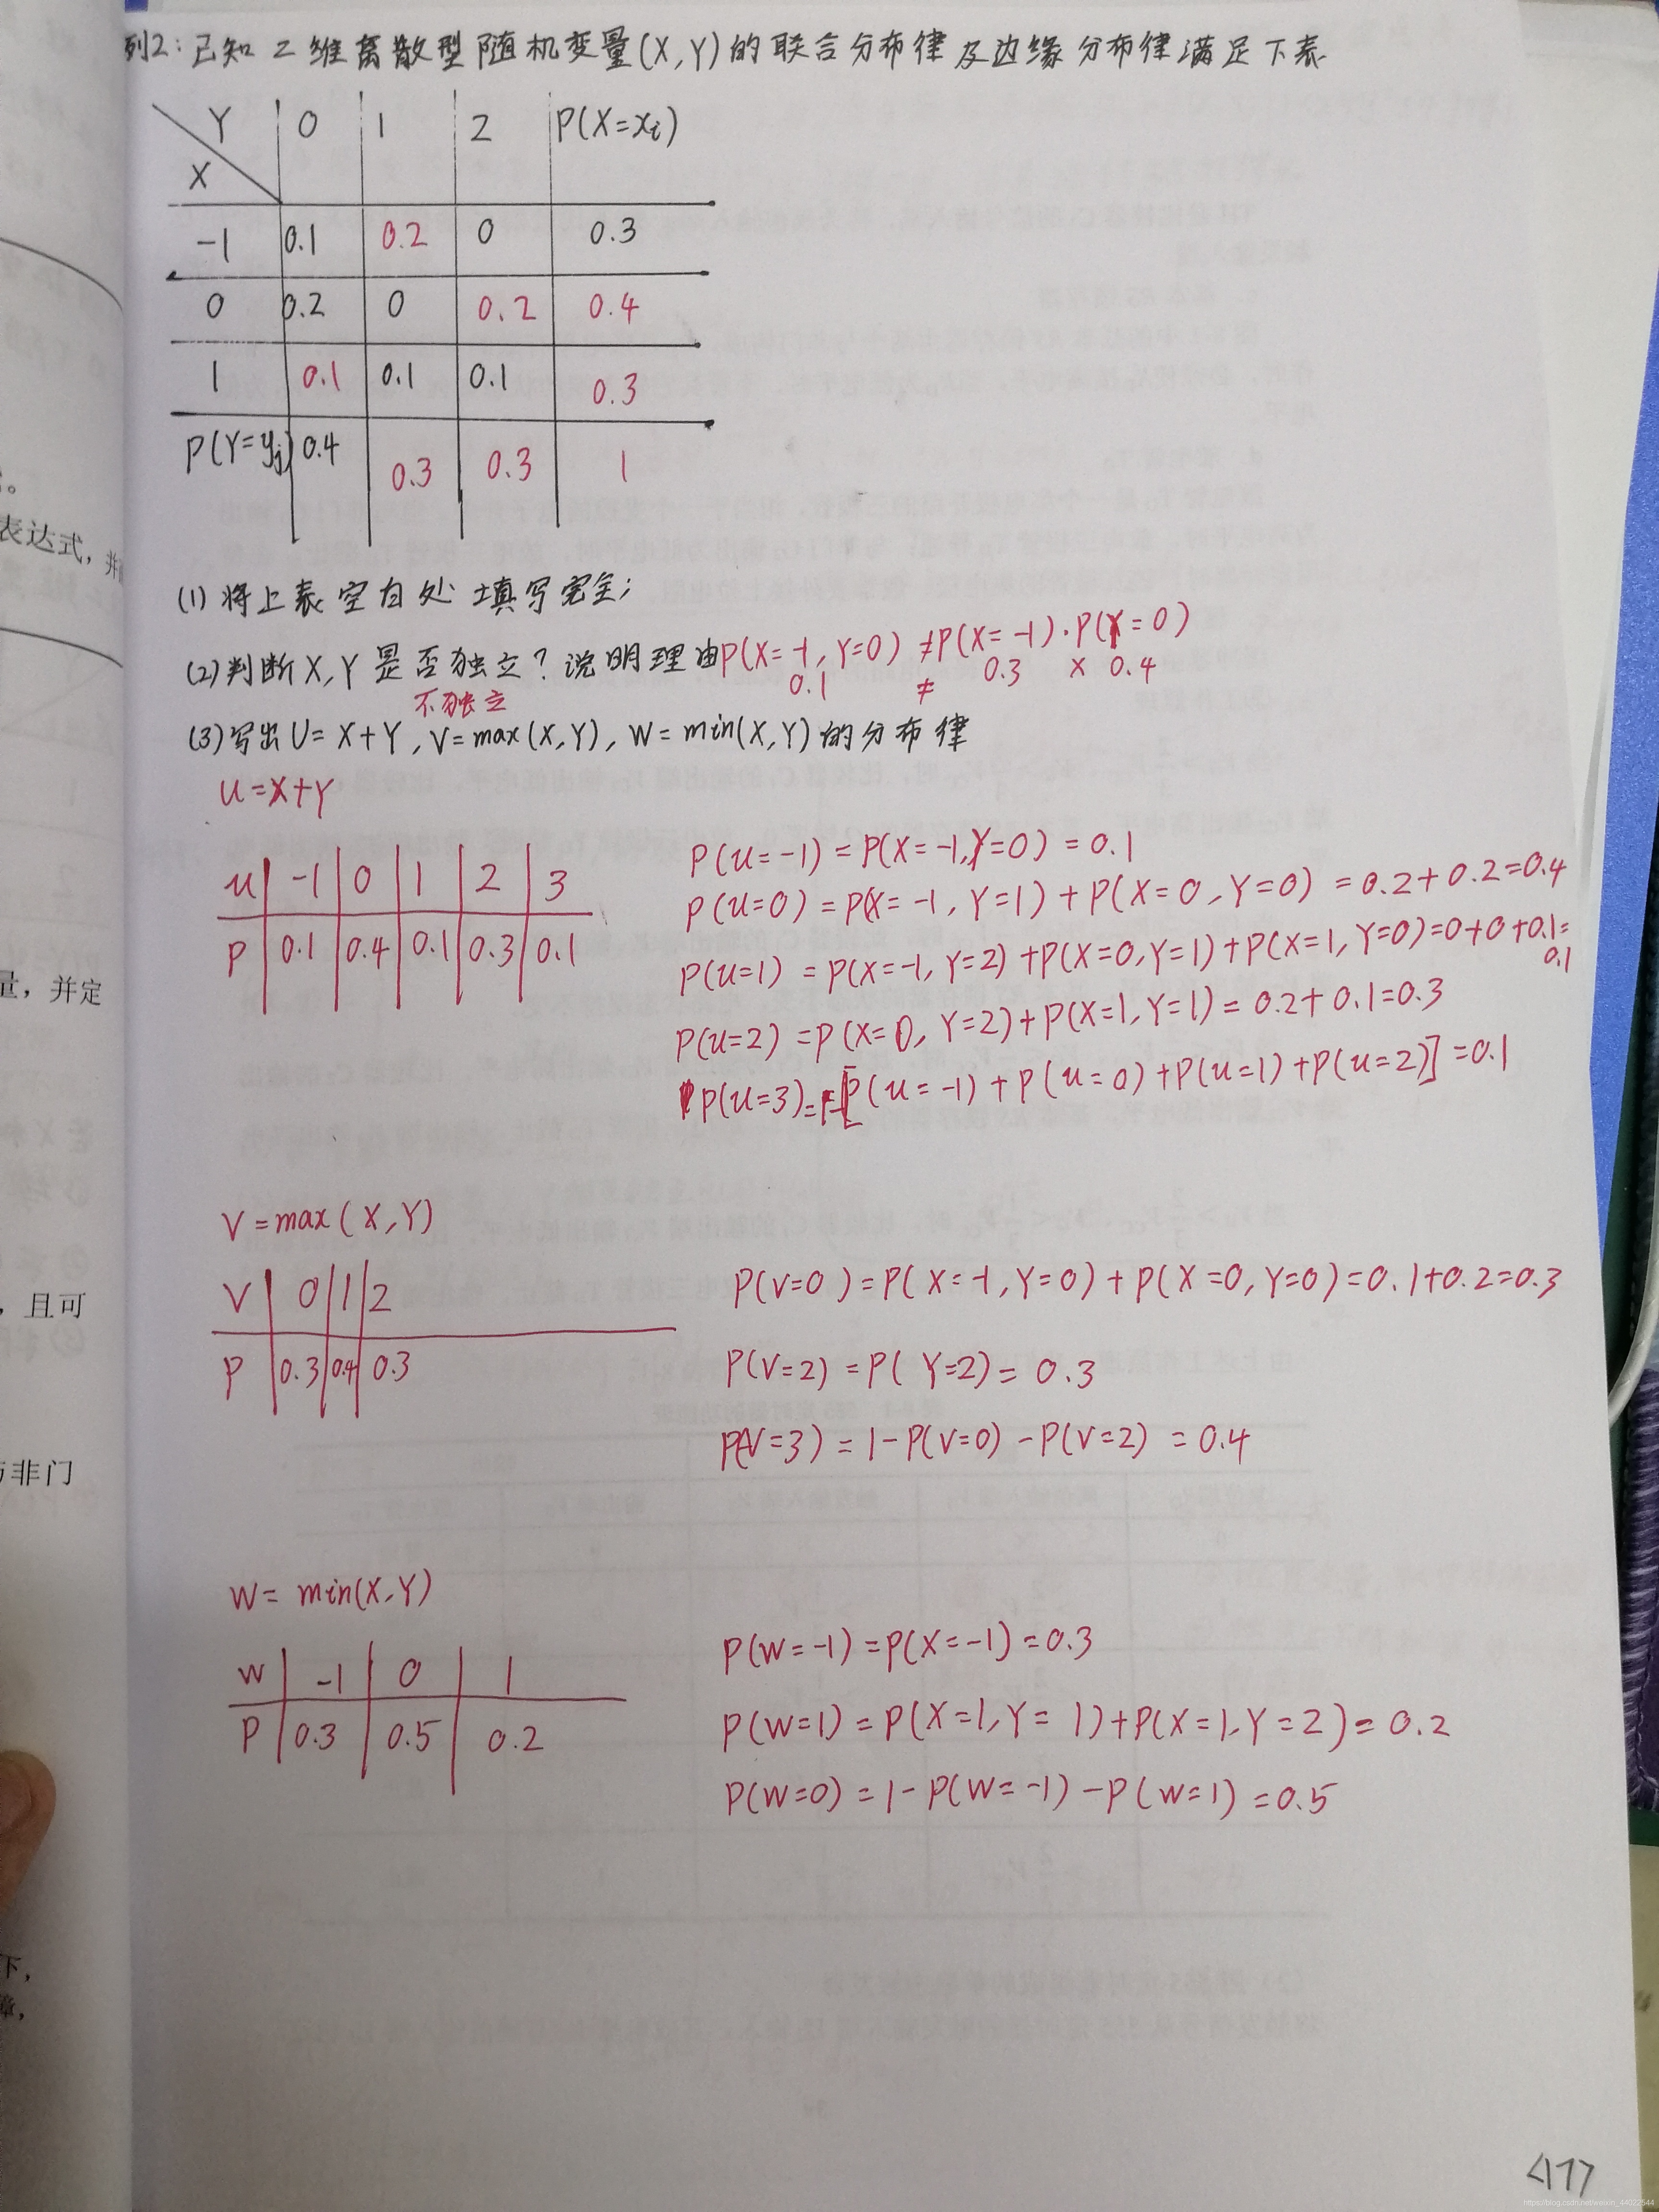 列2：已知二维离散型随机变量(X,Y)的联合分布律及边缘分布律满足下表
Y 0 1 2 P(X=xi)
X
-1 0.1 0.2 0 0.3
0 0.2 0 0.2 0.4
1 0.1 0.1 0.1 0.3
P(Y=yj) 0.4 0.3 0.3 1
(1)将上表空白处填写完全;
(2)判断X,Y是否独立？说明理由P(X=-1,Y=0)≠P(X=-1)·P(Y=0)
0.1 ≠ 0.3 × 0.4
不独立
(3)写出U=X+Y,V=max(X,Y),W=min(X,Y)的分布律
u=X+Y
u -1 0 1 2 3
P 0.1 0.4 0.1 0.3 0.1
P(u=-1)=P(X=-1,Y=0)=0.1
P(u=0)=P(X=-1,Y=1)+P(X=0,Y=0)=0.2+0.2=0.4
P(u=1)=P(X=-1,Y=2)+P(X=0,Y=1)+P(X=1,Y=0)=0+0+0.1=
0.1
P(u=2)=P(X=0,Y=2)+P(X=1,Y=1)=0.2+0.1=0.3
P(u=3)=1-[P(u=-1)+P(u=0)+P(u=1)+P(u=2)]=0.1
V=max(X,Y)
V 0 1 2
P 0.3 0.4 0.3
P(V=0)=P(X=-1,Y=0)+P(X=0,Y=0)=0.1+0.2=0.3
P(V=2)=P(Y=2)=0.3
P(V=3)=1-P(V=0)-P(V=2)=0.4
W=min(X,Y)
W -1 0 1
P 0.3 0.5 0.2
P(W=-1)=P(X=-1)=0.3
P(W=1)=P(X=1,Y=1)+P(X=1,Y=2)=0.2
P(W=0)=1-P(W=-1)-P(W=1)=0.5
表达式，
量，并定
，且可
与非门
下，
https://blog.csdn.net/weixin_44022544